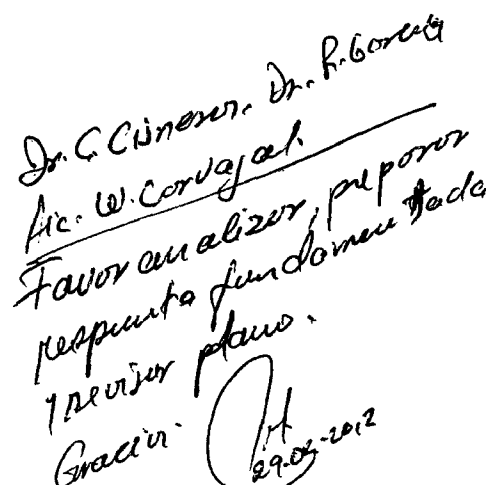 Dr. C. Cisneros. Dr. R. García
Lic. W. Carvajal.
Favor analizar, preparar
respuesta fundamentada
y revisar plano.
Gracias.
29-02-2012